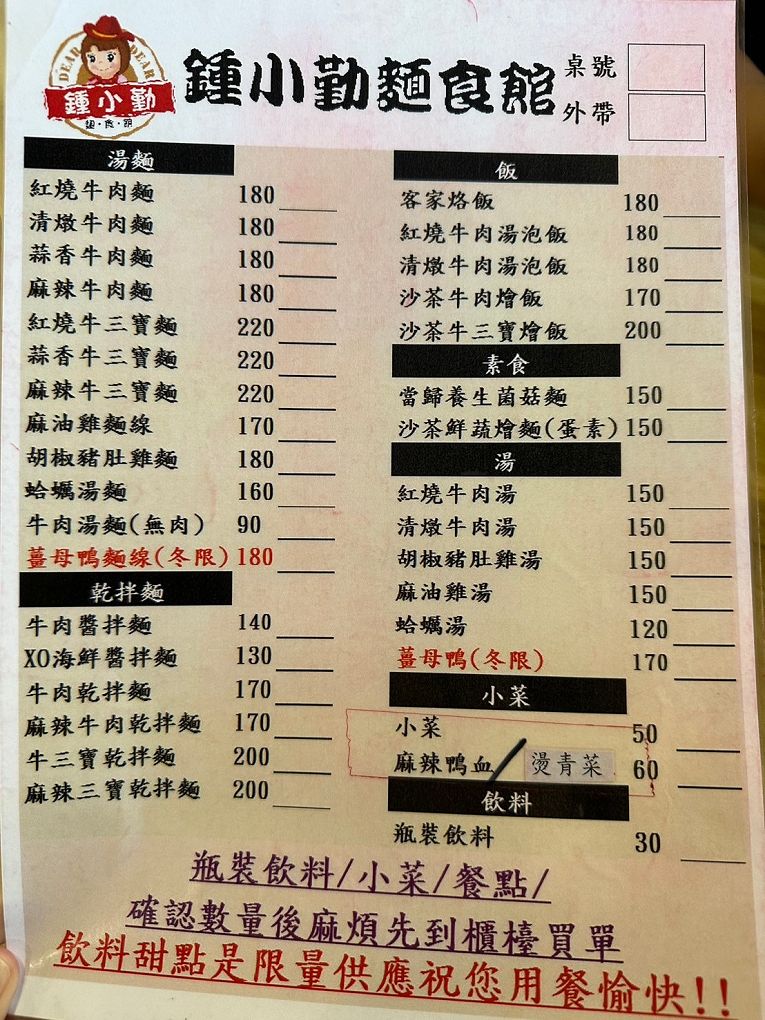 DEAR DEAR
鍾小勤
麵・食・館
鍾小勤麵食館
桌號
外帶
湯麵
紅燒牛肉麵 180
清燉牛肉麵 180
蒜香牛肉麵 180
麻辣牛肉麵 180
紅燒牛三寶麵 220
蒜香牛三寶麵 220
麻辣牛三寶麵 220
麻油雞麵線 170
胡椒豬肚雞麵 180
蛤蠣湯麵 160
牛肉湯麵(無肉) 90
薑母鴨麵線(冬限) 180
乾拌麵
牛肉醬拌麵 140
XO海鮮醬拌麵 130
牛肉乾拌麵 170
麻辣牛肉乾拌麵 170
牛三寶乾拌麵 200
麻辣三寶乾拌麵 200
飯
客家烙飯 180
紅燒牛肉湯泡飯 180
清燉牛肉湯泡飯 180
沙茶牛肉燴飯 170
沙茶牛三寶燴飯 200
素食
當歸養生菌菇麵 150
沙茶鮮蔬燴麵(蛋素) 150
湯
紅燒牛肉湯 150
清燉牛肉湯 150
胡椒豬肚雞湯 150
麻油雞湯 150
蛤蠣湯 120
薑母鴨(冬限) 170
小菜
小菜 50
麻辣鴨血/燙青菜 60
飲料
瓶裝飲料 30
瓶裝飲料/小菜/餐點/
確認數量後麻煩先到櫃檯買單
飲料甜點是限量供應祝您用餐愉快!!